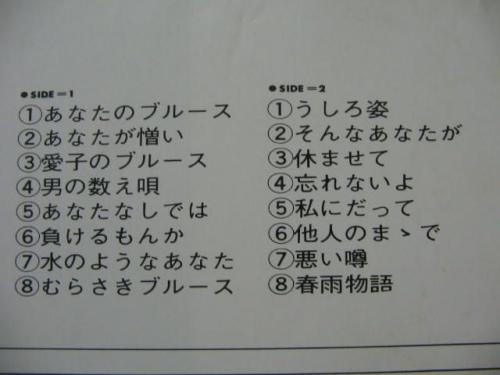 ● SIDE=1
①あなたのブルース
②あなたが憎い
③愛子のブルース
④男の数え唄
⑤あなたなしでは
⑥負けるもんか
⑦水のようなあなた
⑧むらさきブルース
● SIDE=2
①うしろ姿
②そんなあなたが
③休ませて
④忘れないよ
⑤私にだって
⑥他人のまゝで
⑦悪い噂
⑧春雨物語